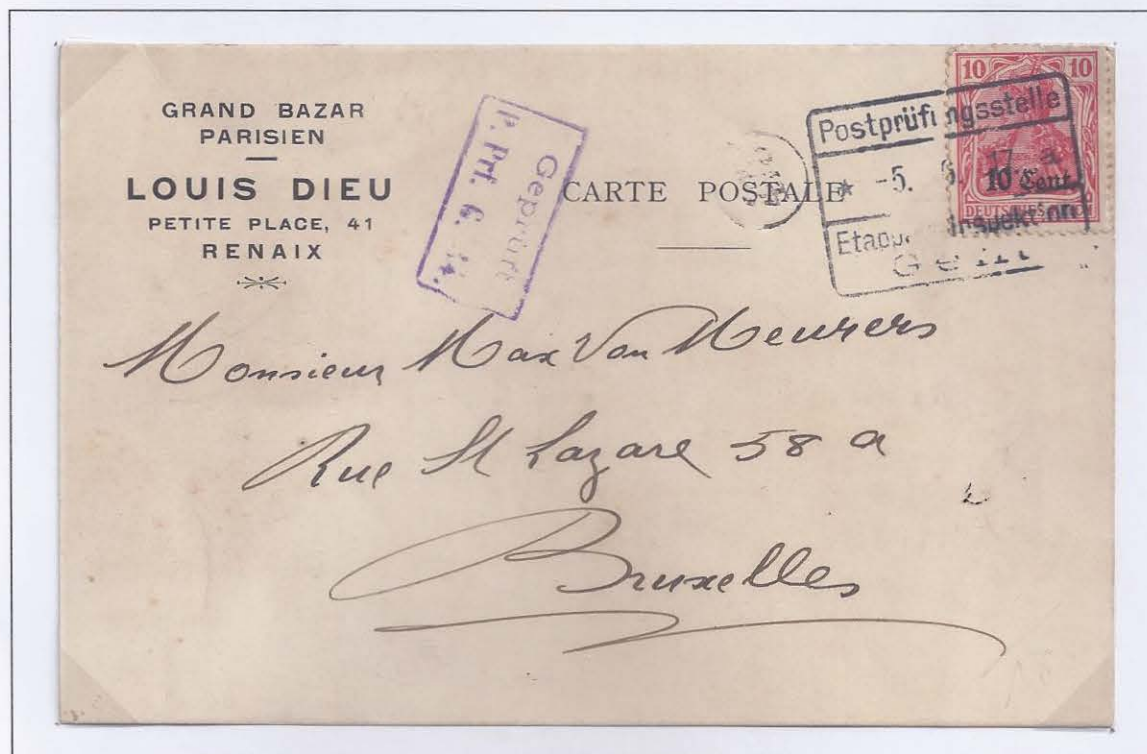 GRAND BAZAR
PARISIEN
LOUIS DIEU
PETITE PLACE, 41
RENAIX
Geprüft
P. Prf. G.
CARTE POSTALE
Postprüfungsstelle
-5. 17 a
Gent
10 10
10 Cent.
Monsieur Max Van Meurers
Rue St Lazare 58 a
Bruxelles